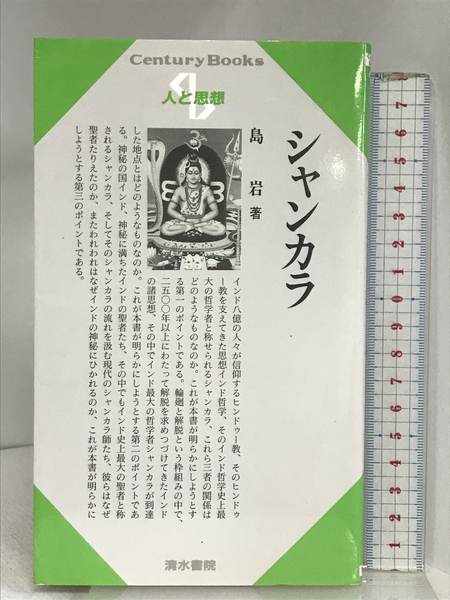 Century Books
人と思想
シャンカラ
島 岩 著
インド八億の人々が信仰するヒンドゥー教、そのヒンドゥ
ー教を支えてきた思想インド哲学、そのインド哲学史上最
大の哲学者と称せられるシャンカラ、これら三者の関係は
どのようなものなのか。これが本書が明らかにしようとす
る第一のポイントである。輪廻と解脱という枠組みの中で、
二五〇〇年以上にわたって解脱を求めつづけてきたインド
の諸思想、その中でインド最大の哲学者シャンカラが到達
した地点とはどのようなものなのか。これが本書が明らかにしようとする第二のポイントであ
る。神秘の国インド、神秘に満ちたインドの聖者たち、その中でもインド史上最大の聖者と称
されるシャンカラ、そしてそのシャンカラの流れを汲む現代のシャンカラ師たち、彼らはなぜ
聖者たりえたのか、またわれわれはなぜインドの神秘にひかれるのか、これが本書が明らかに
しようとする第三のポイントである。
清水書院
1 2 3 4 5 6 7 8 9 10 1 2 3 4 5 6 7